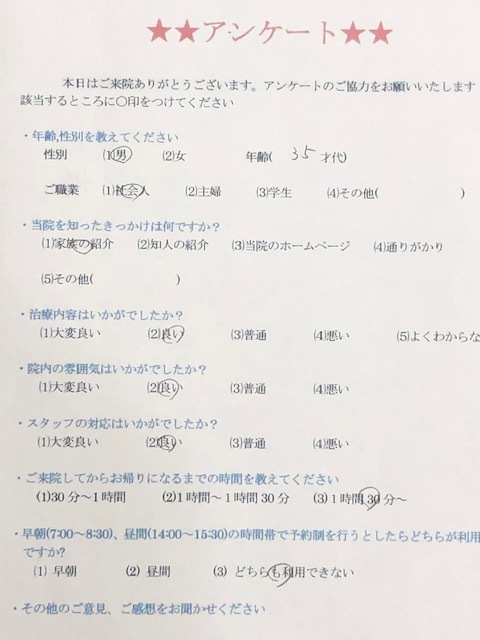 ★★アンケート★★
本日はご来院ありがとうございます。アンケートのご協力をお願いいたします
該当するところに〇印をつけてください
・年齢,性別を教えてください
性別 (1)男 (2)女 年齢( 35 才代)
ご職業 (1)社会人 (2)主婦 (3)学生 (4)その他( )
・当院を知ったきっかけは何ですか？
(1)家族の紹介 (2)知人の紹介 (3)当院のホームページ (4)通りがかり
(5)その他( )
・治療内容はいかがでしたか？
(1)大変良い (2)良い (3)普通 (4)悪い (5)よくわからな
・院内の雰囲気はいかがでしたか？
(1)大変良い (2)良い (3)普通 (4)悪い
・スタッフの対応はいかがでしたか？
(1)大変良い (2)良い (3)普通 (4)悪い
・ご来院してからお帰りになるまでの時間を教えてください
(1)30分～1時間 (2)1時間～1時間30分 (3)1時間30分～
・早朝(7:00～8:30)、昼間(14:00～15:30)の時間帯で予約制を行うとしたらどちらが利用
ですか?
(1) 早朝 (2) 昼間 (3) どちらも利用できない
・その他のご意見、ご感想をお聞かせください